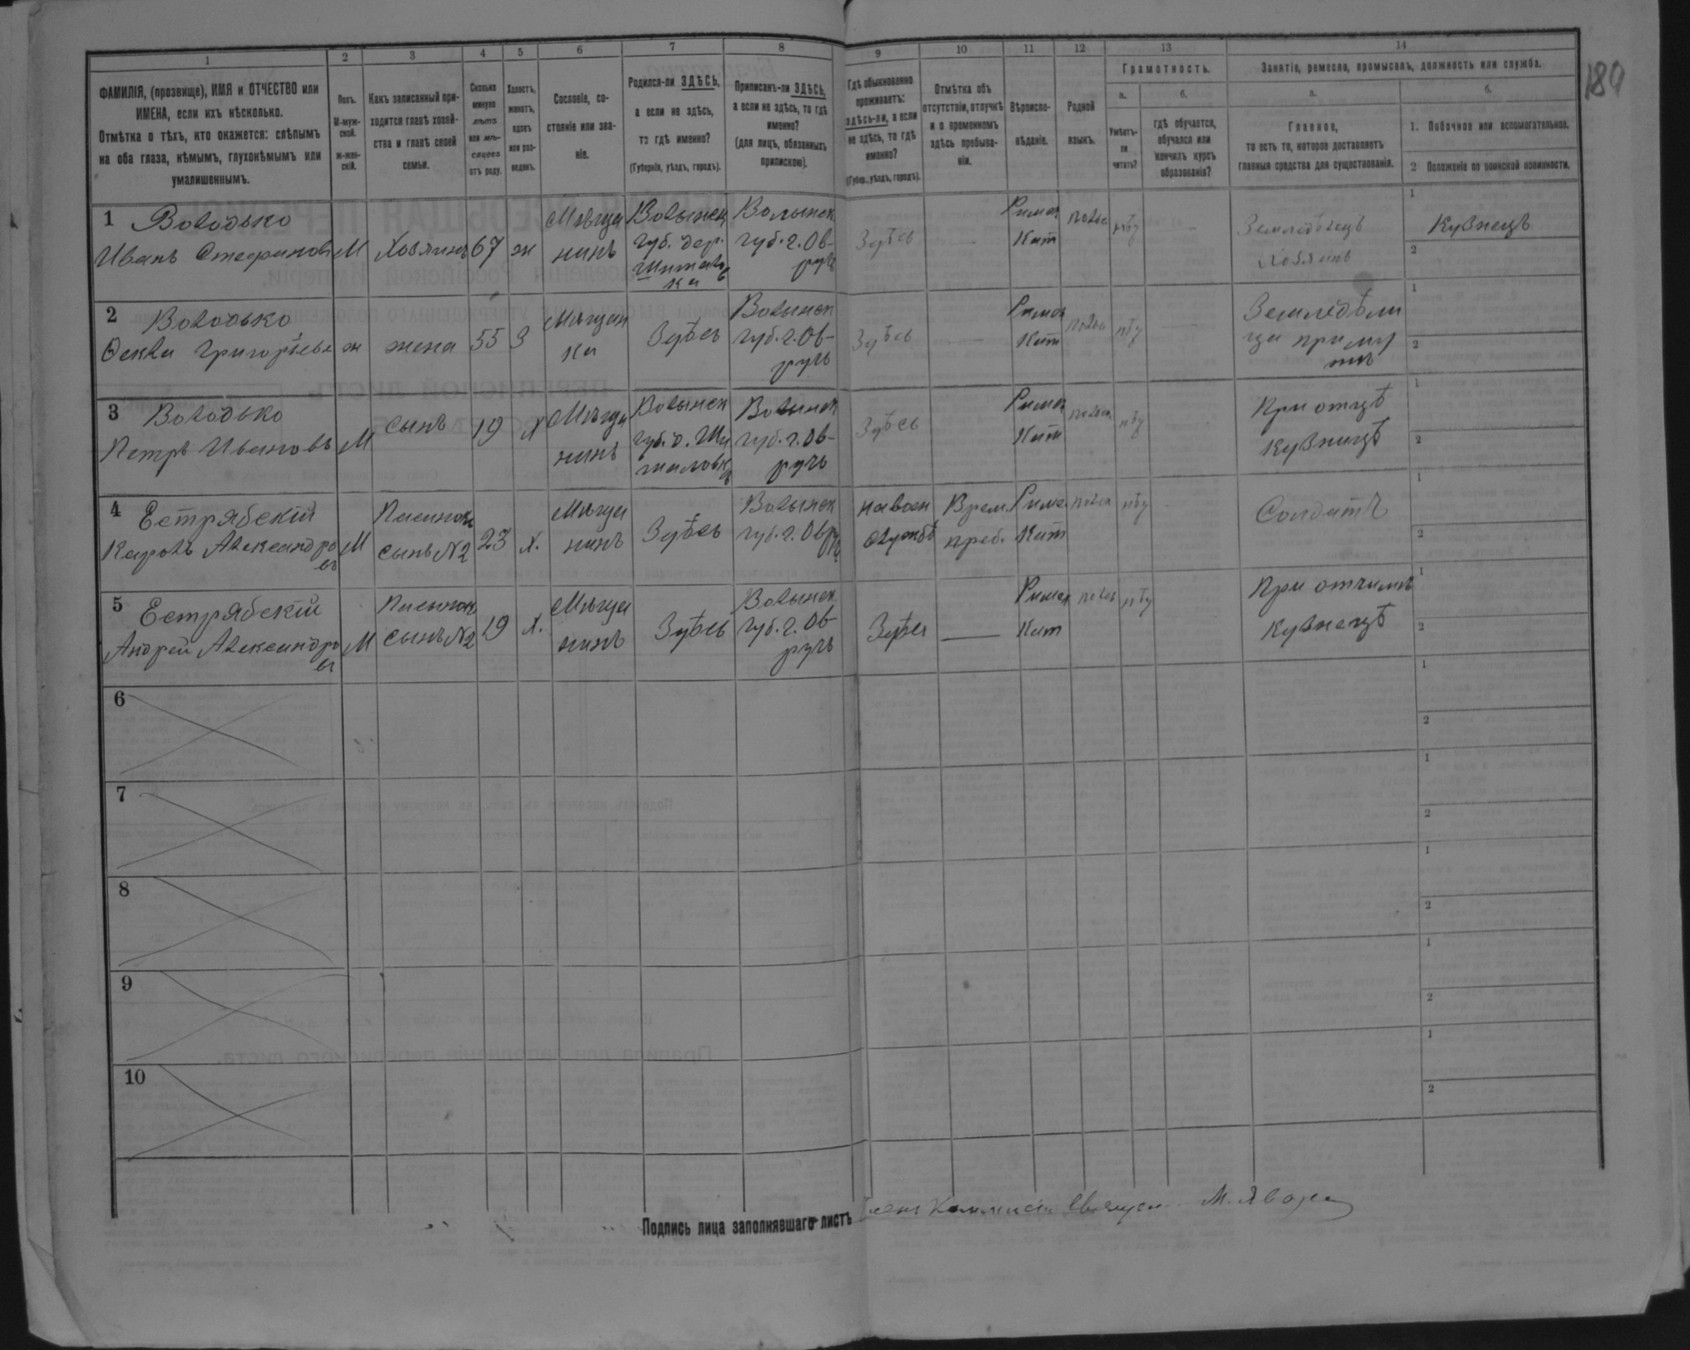 1 2 3 4 5 6 7 8 9 10 11 12 13 14
189
ФАМИЛІЯ, (прозвище), ИМЯ и ОТЧЕСТВО или
ИМЕНА, если ихъ нѣсколько.
Отмѣтка о тѣхъ, кто окажется: слѣпымъ
на оба глаза, нѣмымъ, глухонѣмымъ или
умалишеннымъ.
Полъ.
М-муж-
ской.
ж-жен-
скій.
Какъ записанный при-
ходится главѣ хозяй-
ства и главѣ своей
семьи.
Сколько
минуло
лѣтъ
или мѣ-
сяцевъ
отъ роду.
Холостъ,
женатъ,
вдовъ
или раз-
веденъ.
Сословіе, со-
стояніе или зва-
ніе.
Родился-ли ЗДѢСЬ,
а если не здѣсь,
то гдѣ именно?
(Губернія, уѣздъ, городъ).
Приписанъ-ли ЗДѢСЬ,
а если не здѣсь, то гдѣ
именно?
(для лицъ, обязанныхъ
припискою).
Гдѣ обыкновенно
проживаетъ:
здѣсь-ли, а если
не здѣсь, то гдѣ
именно?
(Губер., уѣздъ, городъ).
Отмѣтка объ
отсутствіи, отлучкѣ
и о временномъ
здѣсь пребыва-
ніи.
Вѣроиспо-
вѣданіе.
Родной
языкъ.
Грамотность.
а.
Умѣетъ-
ли
читать?
б.
гдѣ обучается,
обучался или
кончилъ курсъ
образованія?
Занятіе, ремесло, промыселъ, должность или служба.
а.
Главное,
то есть то, которое доставляетъ
главныя средства для существованія.
б.
1. Побочное или вспомогательное.
2 Положеніе по воинской повинности.
1 Володько
Иванъ Стефановъ М Хозяинъ 67 ж
Мѣщанинъ
Волынск
губ. дер.
Волынск
губ. г. Ов-
ручъ
Здѣсь
Римск
Кат
нѣт
Земледѣлецъ
Хозяинъ
1 Кузнецъ
2
2 Володько
Григорьева ж жена 55 З
Мѣщанка
Здѣсь
Волынск
губ. г. Ов-
ручъ
Здѣсь
Римск
Кат
нѣт
Земледѣли
ца при му
жѣ
1
2
3 Володько
Петръ Ивановъ М сынъ 19 Х
Мѣщанинъ
Волынск
губ. д. Ши
Волынск
губ. г. Ов-
ручъ
Здѣсь
Римск
Кат
нѣт
При отцѣ
Кузнецѣ
1
2
4 Александро
въ М Пасынок
сынъ №2 23 Х.
Мѣщанинъ
Здѣсь
Волынск
губ. г. Овруч
На воен
службѣ
Врем.
преб.
Римс.
Кат
нѣт
Солдатъ
1
2
5 Андрей Александро
въ М Пасынок
сынъ №2 19 Х.
Мѣщанинъ
Здѣсь
Волынск
губ. г. Ов-
ручъ
Здѣсь
Римск
Кат
нѣт
При отчимѣ
Кузнецѣ
1
2
6
1
2
7
1
2
8
1
2
9
1
2
10
1
2
Подпись лица заполнявшаго листъ